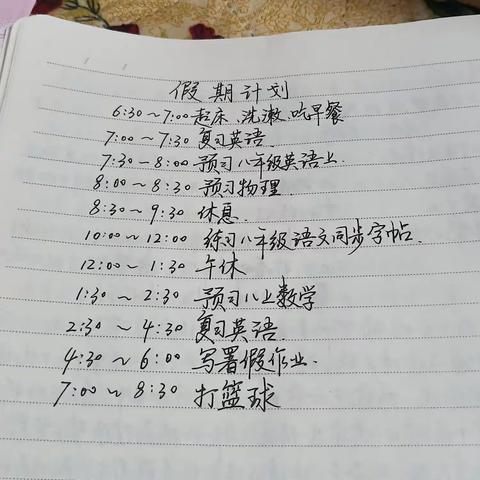 假期计划
6:30~7:00起床、洗漱、吃早餐
7:00~7:30 复习英语.
7:30-8:00 预习八年级英语上.
8:00~8:30 预习物理
8:30~9:30 休息.
10:00~12:00 练习八年级语文同步字帖.
12:00~1:30 午休
1:30~2:30 预习八上数学
2:30~4:30 复习英语
4:30~6:00 写署假作业.
7:00~8:30 打篮球